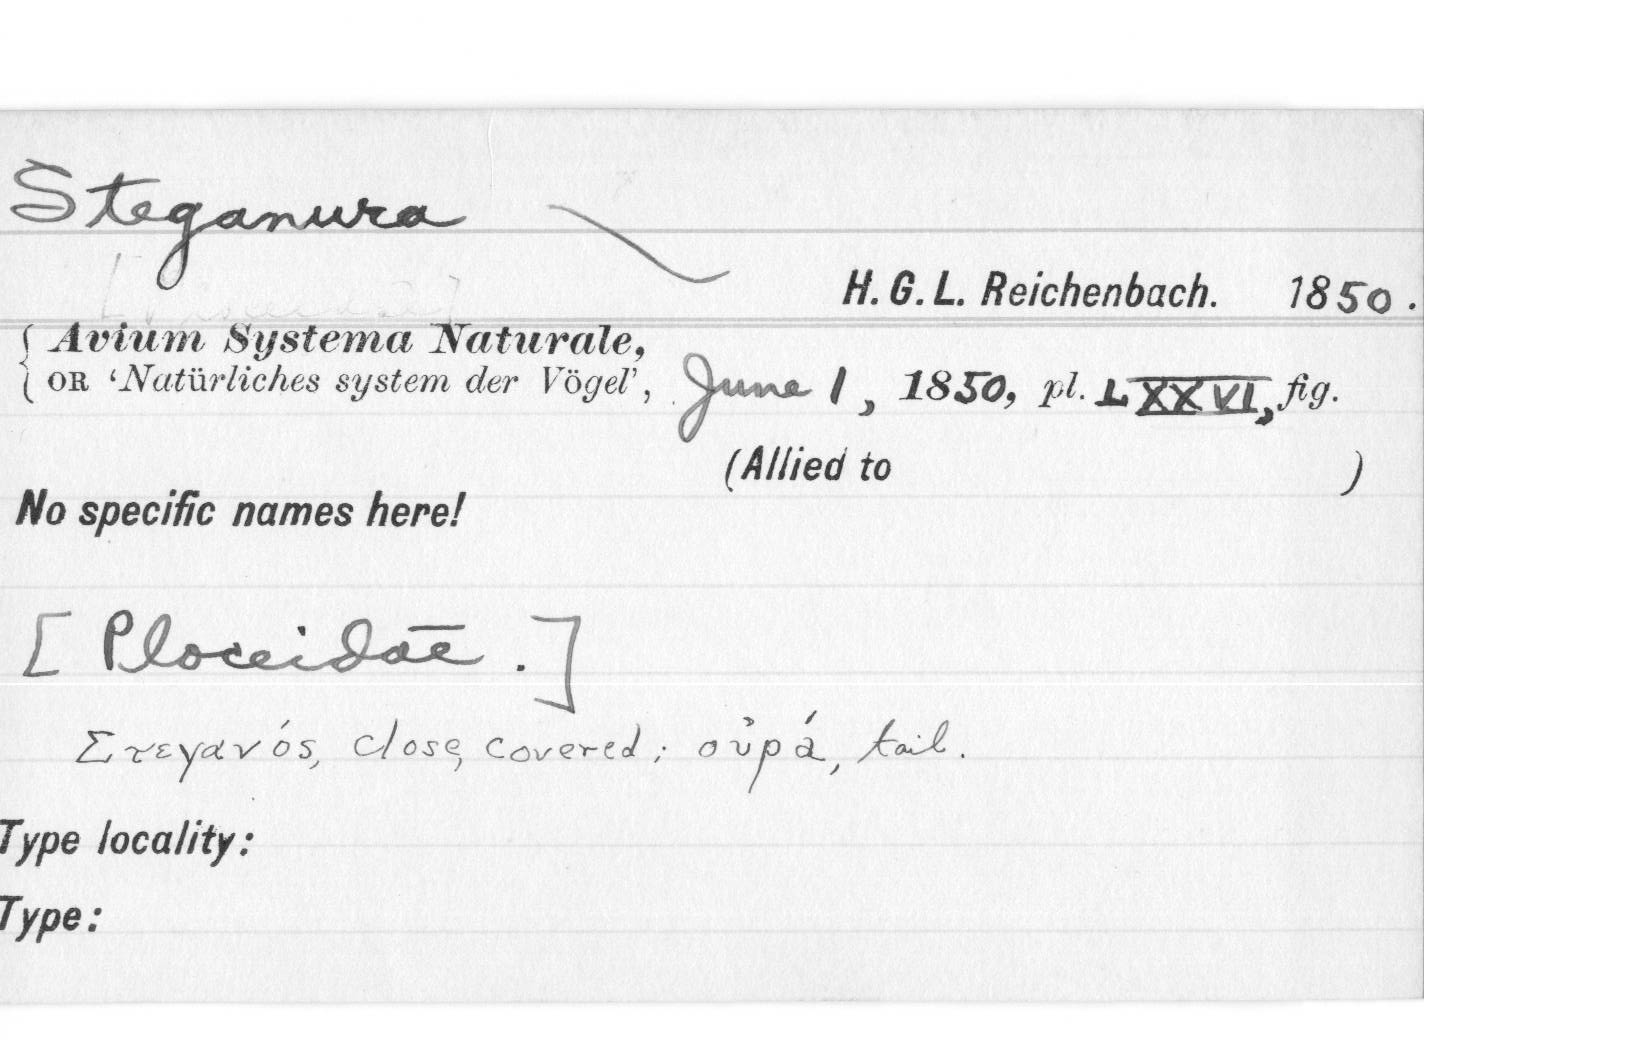 Steganura
H. G. L. Reichenbach. 1850.
{ Avium Systema Naturale,
{ OR ‘Natürliches system der Vögel’, June 1, 1850, pl. LXXVI, fig.
(Allied to )
No specific names here!
[Ploceidae.]
Στεγανός, close, covered; οὐρά, tail.
Type locality:
Type: